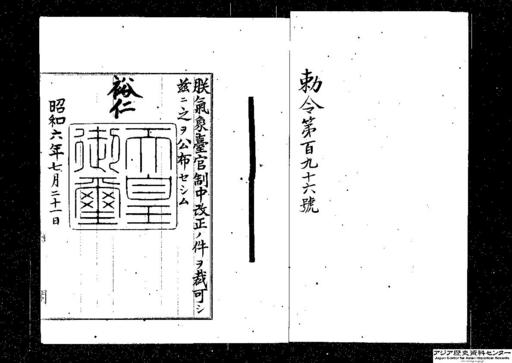 勅令第百九十六號
朕氣象臺官制中改正ノ件ヲ裁可シ
玆ニ之ヲ公布セシム
裕仁
天皇御璽
昭和六年七月二十一日
アジア歴史資料センター
Japan Center for Asian Historical Records